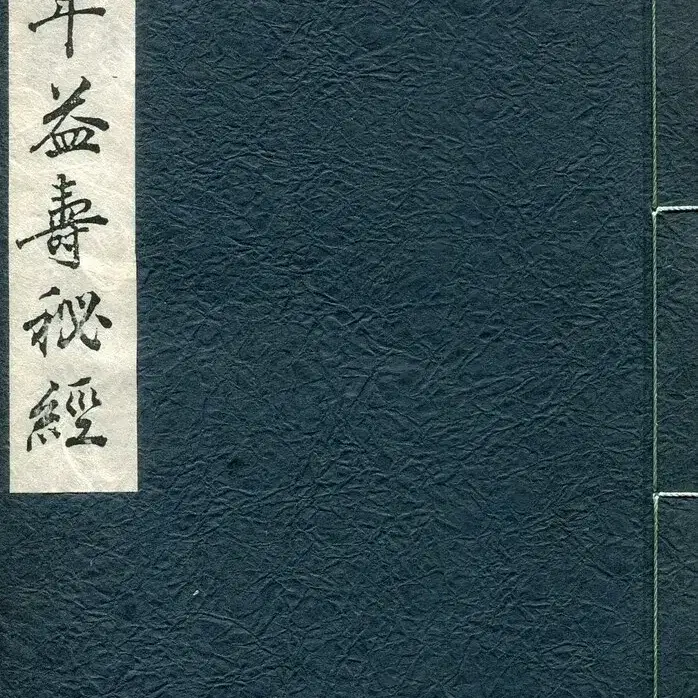 年益壽秘經